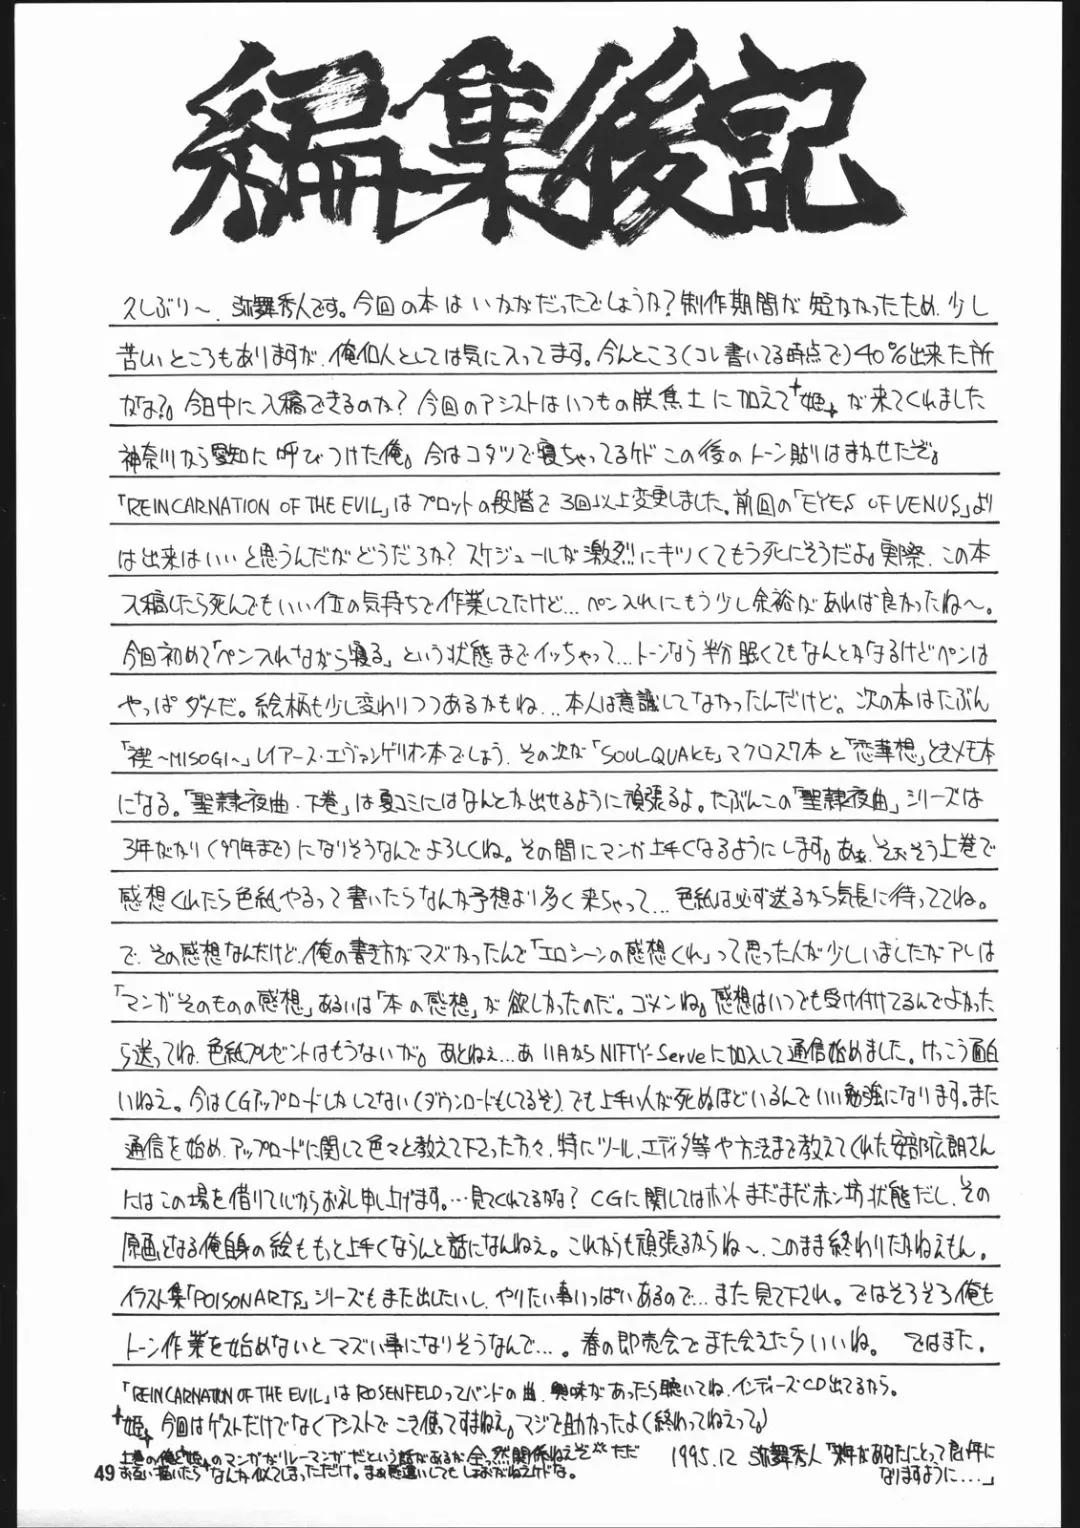 編集後記
久しぶり〜、弥舞秀人です。今回の本はいかがだったでしょうか?制作期間が短かかったため、少し
苦しいところもありますが、俺個人としては気に入ってます。今んところ(コレ書いてる時点で)40%出来た所
かな?。今日中に入稿できるのか?今回のアシストはいつもの炭焦土に加えて姫が来てくれました
神奈川から愛知に呼びつけた俺。今はコタツで寝ちゃってるケドこの後のトーン貼りはまかせたぞ。
「REINCARNATION OF THE EVIL」はプロットの段階で3回以上変更しました。前回の「EYES OF VENUS」より
は出来はいいと思うんだがどうだろか?スケジュールが激烈にキツくてもう死にそうだよ。実際、この本
入稿したら死んでもいい位の気持ちで作業してたけど…ペン入れにもう少し余裕があれば良かったね〜。
今回初めて「ペン入れながら寝る」という状態までイッちゃって…トーンなら半分眠くてもなんとかなるけどペンは
やっぱダメだ。絵柄も少し変わりつつあるかもね…本人は意識してなかったんだけど。次の本はたぶん
「禊〜MISOGI〜」レイアース・エヴァンゲリオン本でしょう、その次が「SOUL QUAKE」マクロス7本と「恋華想」ときメモ本
になる。「聖隷夜曲・下巻」は夏コミにはなんとか出せるように頑張るよ。たぶんこの「聖隷夜曲」シリーズは
3年がかり(97年まで)になりそうなんでよろしくね。その間にマンガ上手くなるようにします。あぁ、そおそう上巻で
感想くれたら色紙やるって書いたらなんか予想より多く来ちゃって…色紙は必ず送るから気長に待っててね。
で、その感想なんだけど、俺の書き方がマズかったんで「エロシーンの感想くれ」って思った人が少しいましたがアレは
「マンガそのものの感想」あるいは「本の感想」が欲しかったのだ。ゴメンね。感想はいつでも受け付けてるんでよかった
ら送ってね、色紙プレゼントはもうないが。あとねぇ…あ、11月からNIFTY-Serveに加入して通信始めました。けっこう面白
いねえ。今はCGアップロードしかしてない(ダウンロードもしてるぞ)、でも上手い人が死ぬほどいるんでいい勉強になります。また
通信を始め、アップロードに関して色々と教えて下さった方々、特にツール、エディタ等や方法まで教えてくれた安部広朗さん
にはこの場を借りて心からお礼申し上げます。…見てくれてるかな?CGに関してはホントまだまだ赤ン坊状態だし、その
原画となる俺自身の絵ももっと上手くならんと話になんねえ。これからも頑張るからね〜、このまま終わりたかねえもん。
イラスト集「POISON ARTS」シリーズもまた出したいし、やりたい事いっぱいあるので…また見て下され。ではそろそろ俺も
トーン作業を始めないとマズい事になりそうなんで…。春の即売会でまた会えたらいいね。ではまた。
「REINCARNATION OF THE EVIL」はROSENFELDってバンドの曲、興味があったら聴いてね、インディーズCD出てるから。
姫、今回はゲストだけでなくアシストでこき使ってすまねえ。マジで助かったよ(終わってねえって。)
上巻の俺と姫のマンガがリレーマンガだという話があるが全っ然関係ねえぞ ただ
お互い描いたらなんか似てしまっただけ。まぁ勘違いしてもしょおがねえけどな。
1995.12 弥舞秀人「来年があなたにとって良い年に
なりますように…」
49